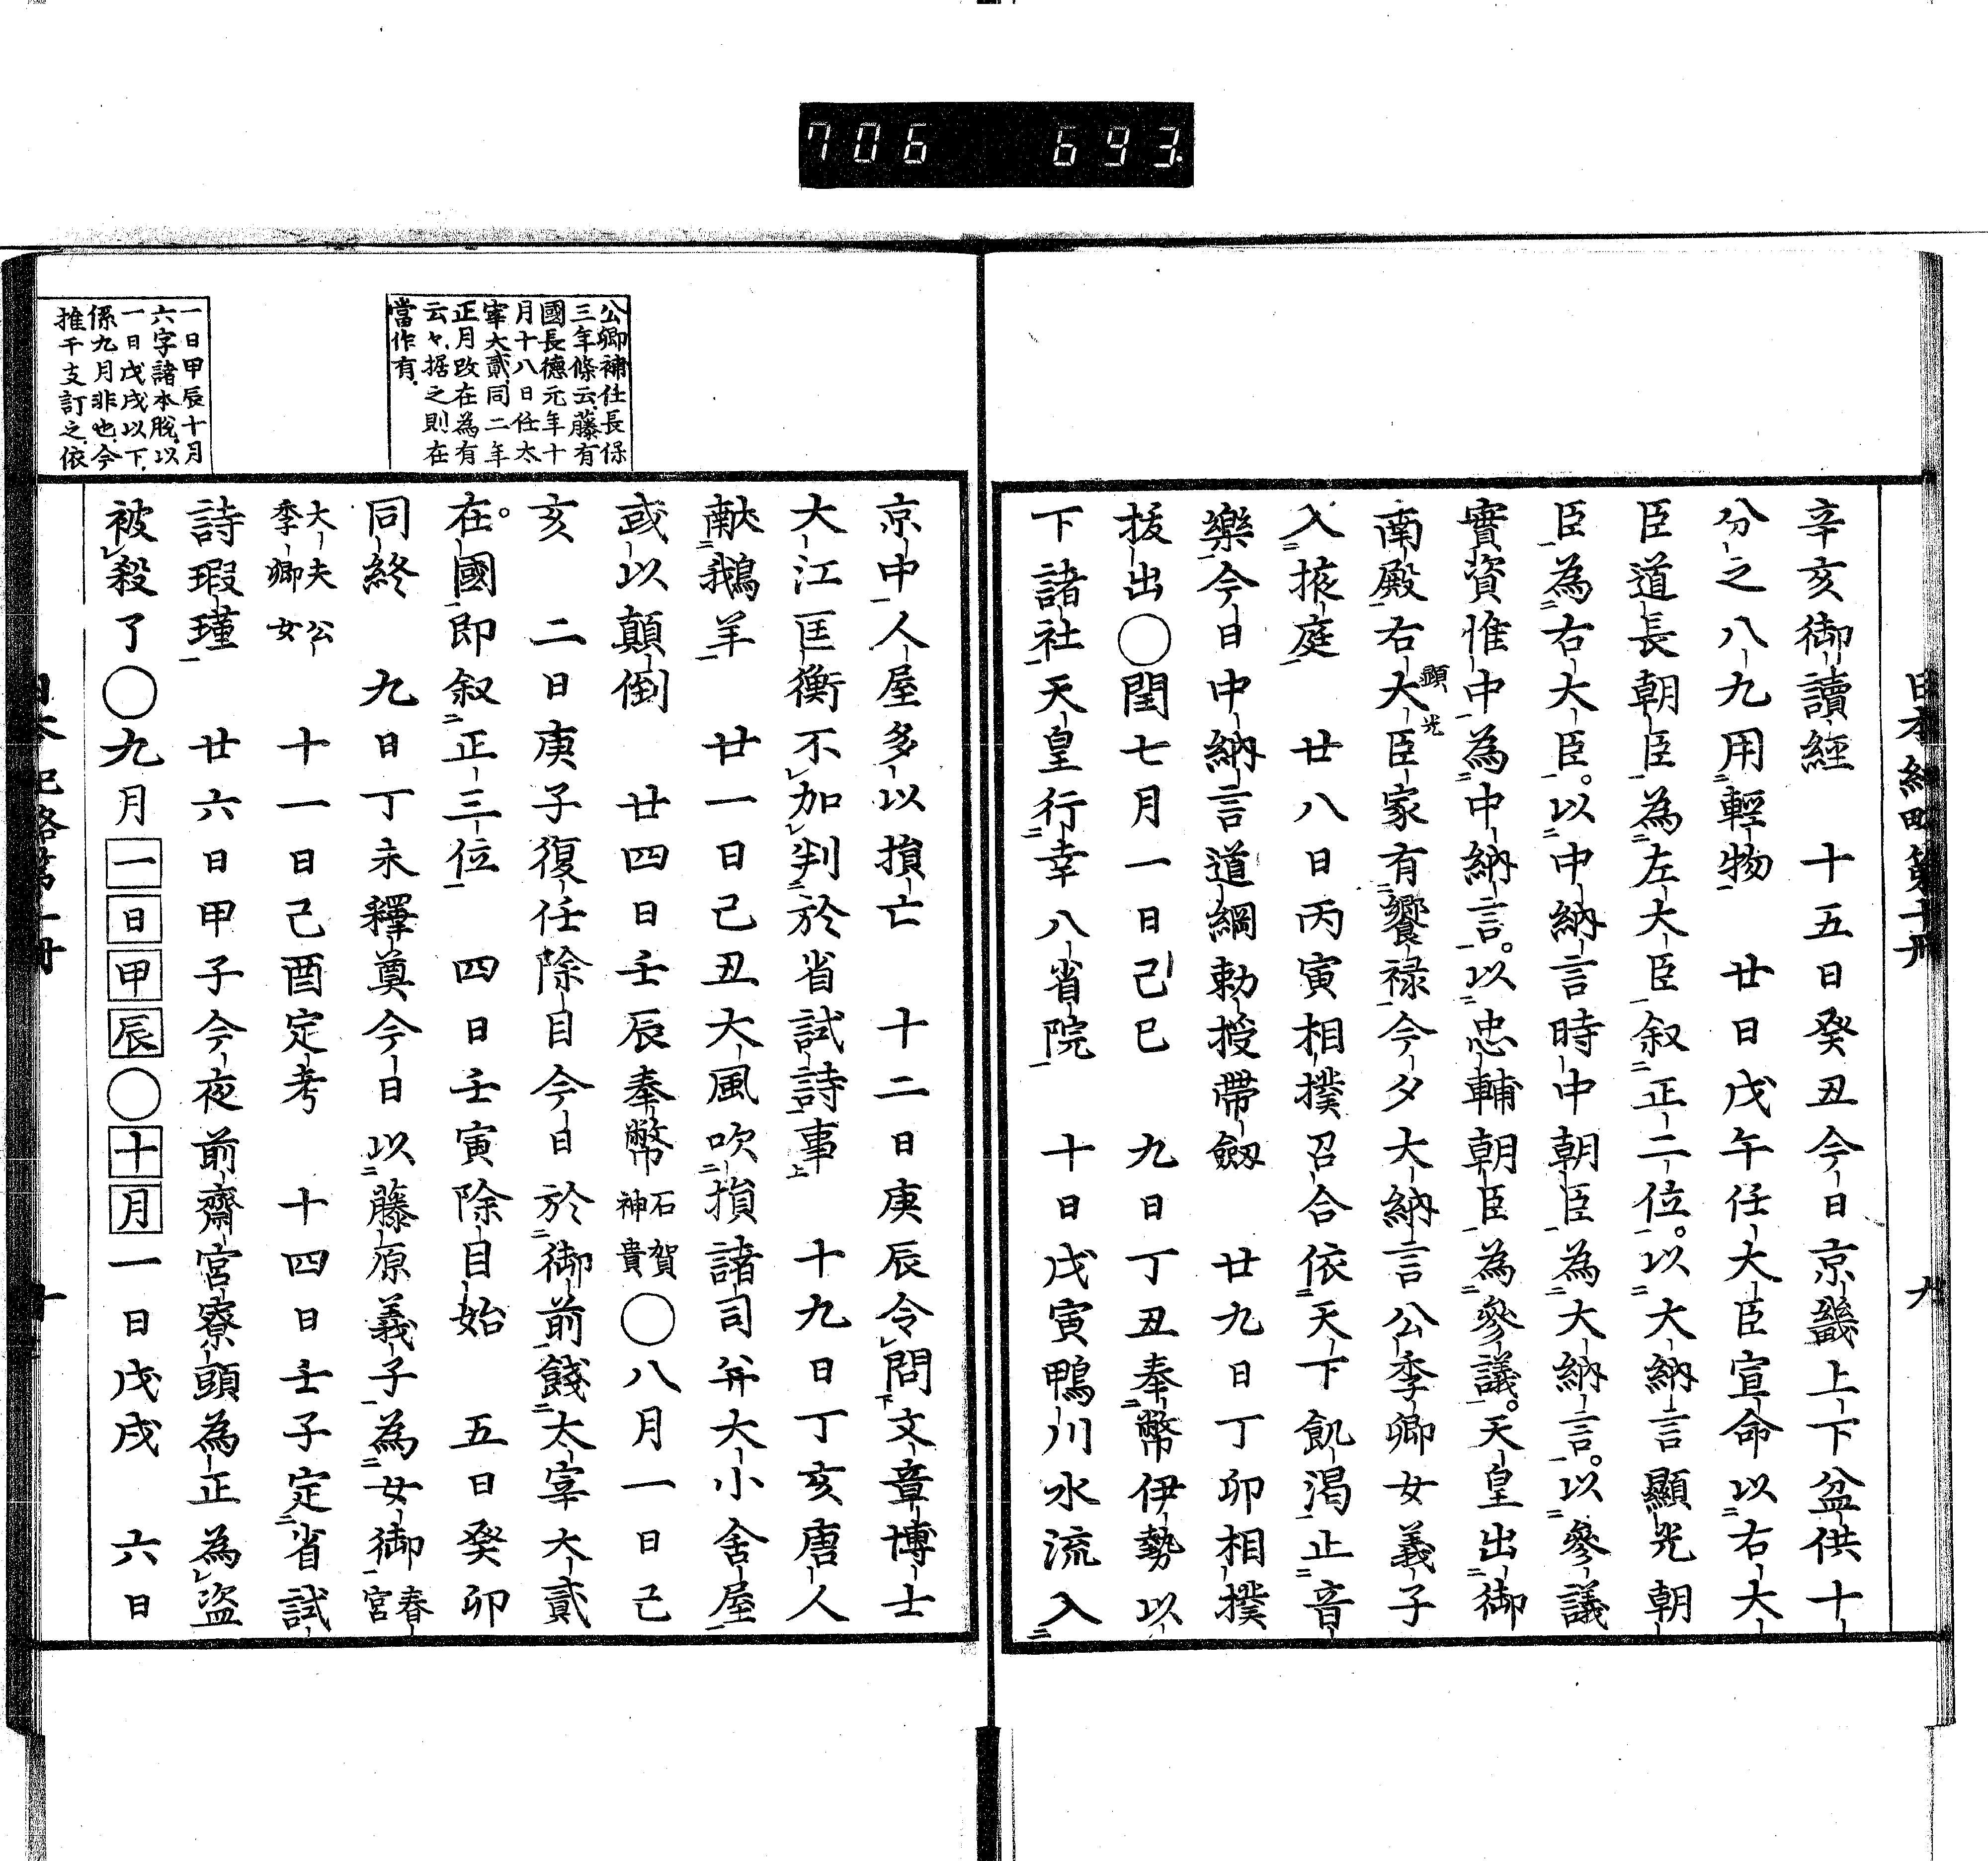 706 693.
日本紀略第十册 九
辛亥御讀經 十五日癸丑今日京畿上下盆供十
分之八九用輕物 廿日戊午任大臣宣命以右大
臣道長朝臣為左大臣叙正二位。以大納言顯光朝
臣為右大臣。以中納言時中朝臣為大納言。以參議
實資惟中為中納言。以忠輔朝臣為參議。天皇出御
南殿右大臣顯光家有饗祿今夕大納言公季卿女義子
入掖庭 廿八日丙寅相撲召合依天下飢渴止音
樂今日中納言道綱勅授帶劔 廿九日丁卯相撲
拔出〇閏七月一日己巳 九日丁丑奉幣伊勢以
下諸社天皇行幸八省院 十日戊寅鴨川水流入
公卿補任長保
三年條云藤有
國長德元年十
月十八日任太
宰大貳同二年
正月改在為有
云々据之則在
當作有
京中人屋多以損亡 十二日庚辰令問文章博士
大江匡衡不加判於省試詩事 十九日丁亥唐人
獻鵝羊 廿一日己丑大風吹損諸司并大小舍屋
或以顛倒 廿四日壬辰奉幣石賀神貴〇八月一日己
亥 二日庚子復任除目今日於御前餞太宰大貳
在。國即叙正三位 四日壬寅除目始 五日癸卯
同終 九日丁未釋奠今日以藤原義子為女御春宮
大夫公季卿女 十一日己酉定考 十四日壬子定省試
詩瑕瑾 廿六日甲子今夜前齋宮寮頭為正為盗
被殺了〇九月一日甲辰〇十月一日戊戌 六日
一日甲辰十月
六字諸本脫以
一日戊戌以下
係九月非也今
推干支訂之依
日本紀略第十册 十